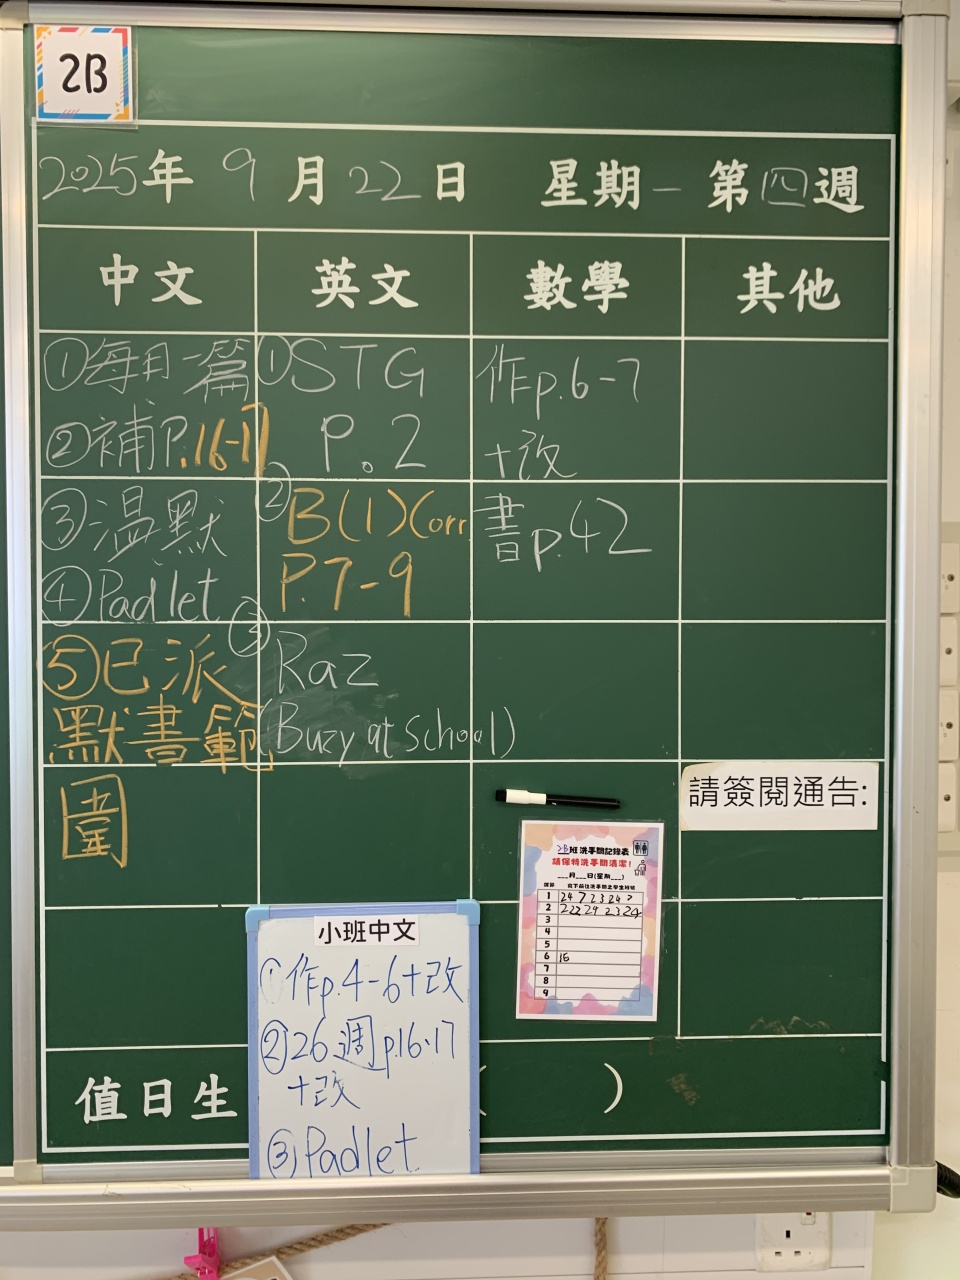 2B
2025年 9月22日 星期一 第四週
中文 英文 數學 其他
①每月一篇
②補P.16-17
③溫默
④Padlet
⑤已派
默書範
圍
①STG
P.2
②B(1)Corr
P.7-9
③Raz
(Buzy at School)
作p.6-7
+改
書p.42
請簽閱通告:
2B班洗手間記錄表
請保持洗手間清潔!
___月___日(星期___)
1 24 7 23 24
2 22 24 23 24
3
4
5
6 16
7
8
9
小班中文
①作p.4-6+改
②26週p.16-17
+改
③Padlet
值日生 ( )